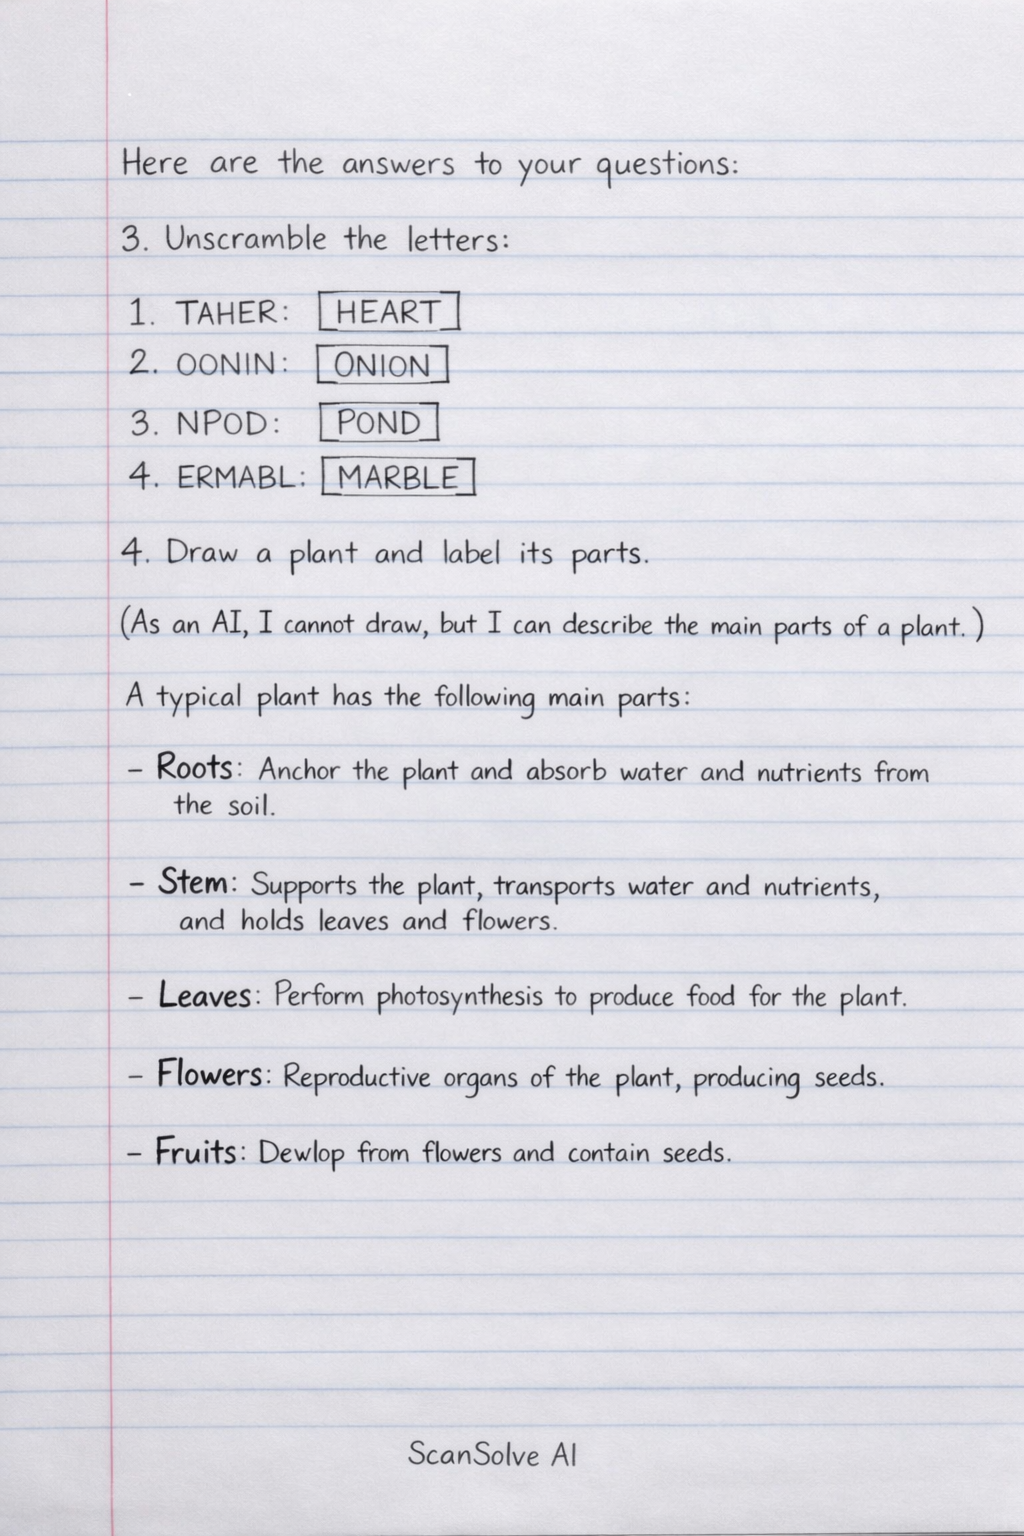 Here are the answers to your questions:
3. Unscramble the letters:
1. TAHER: [HEART]
2. OONIN: [ONION]
3. NPOD: [POND]
4. ERMABL: [MARBLE]
4. Draw a plant and label its parts.
(As an AI, I cannot draw, but I can describe the main parts of a plant.)
A typical plant has the following main parts:
- Roots: Anchor the plant and absorb water and nutrients from
the soil.
- Stem: Supports the plant, transports water and nutrients,
and holds leaves and flowers.
- Leaves: Perform photosynthesis to produce food for the plant.
- Flowers: Reproductive organs of the plant, producing seeds.
- Fruits: Dewlop from flowers and contain seeds.
ScanSolve AI